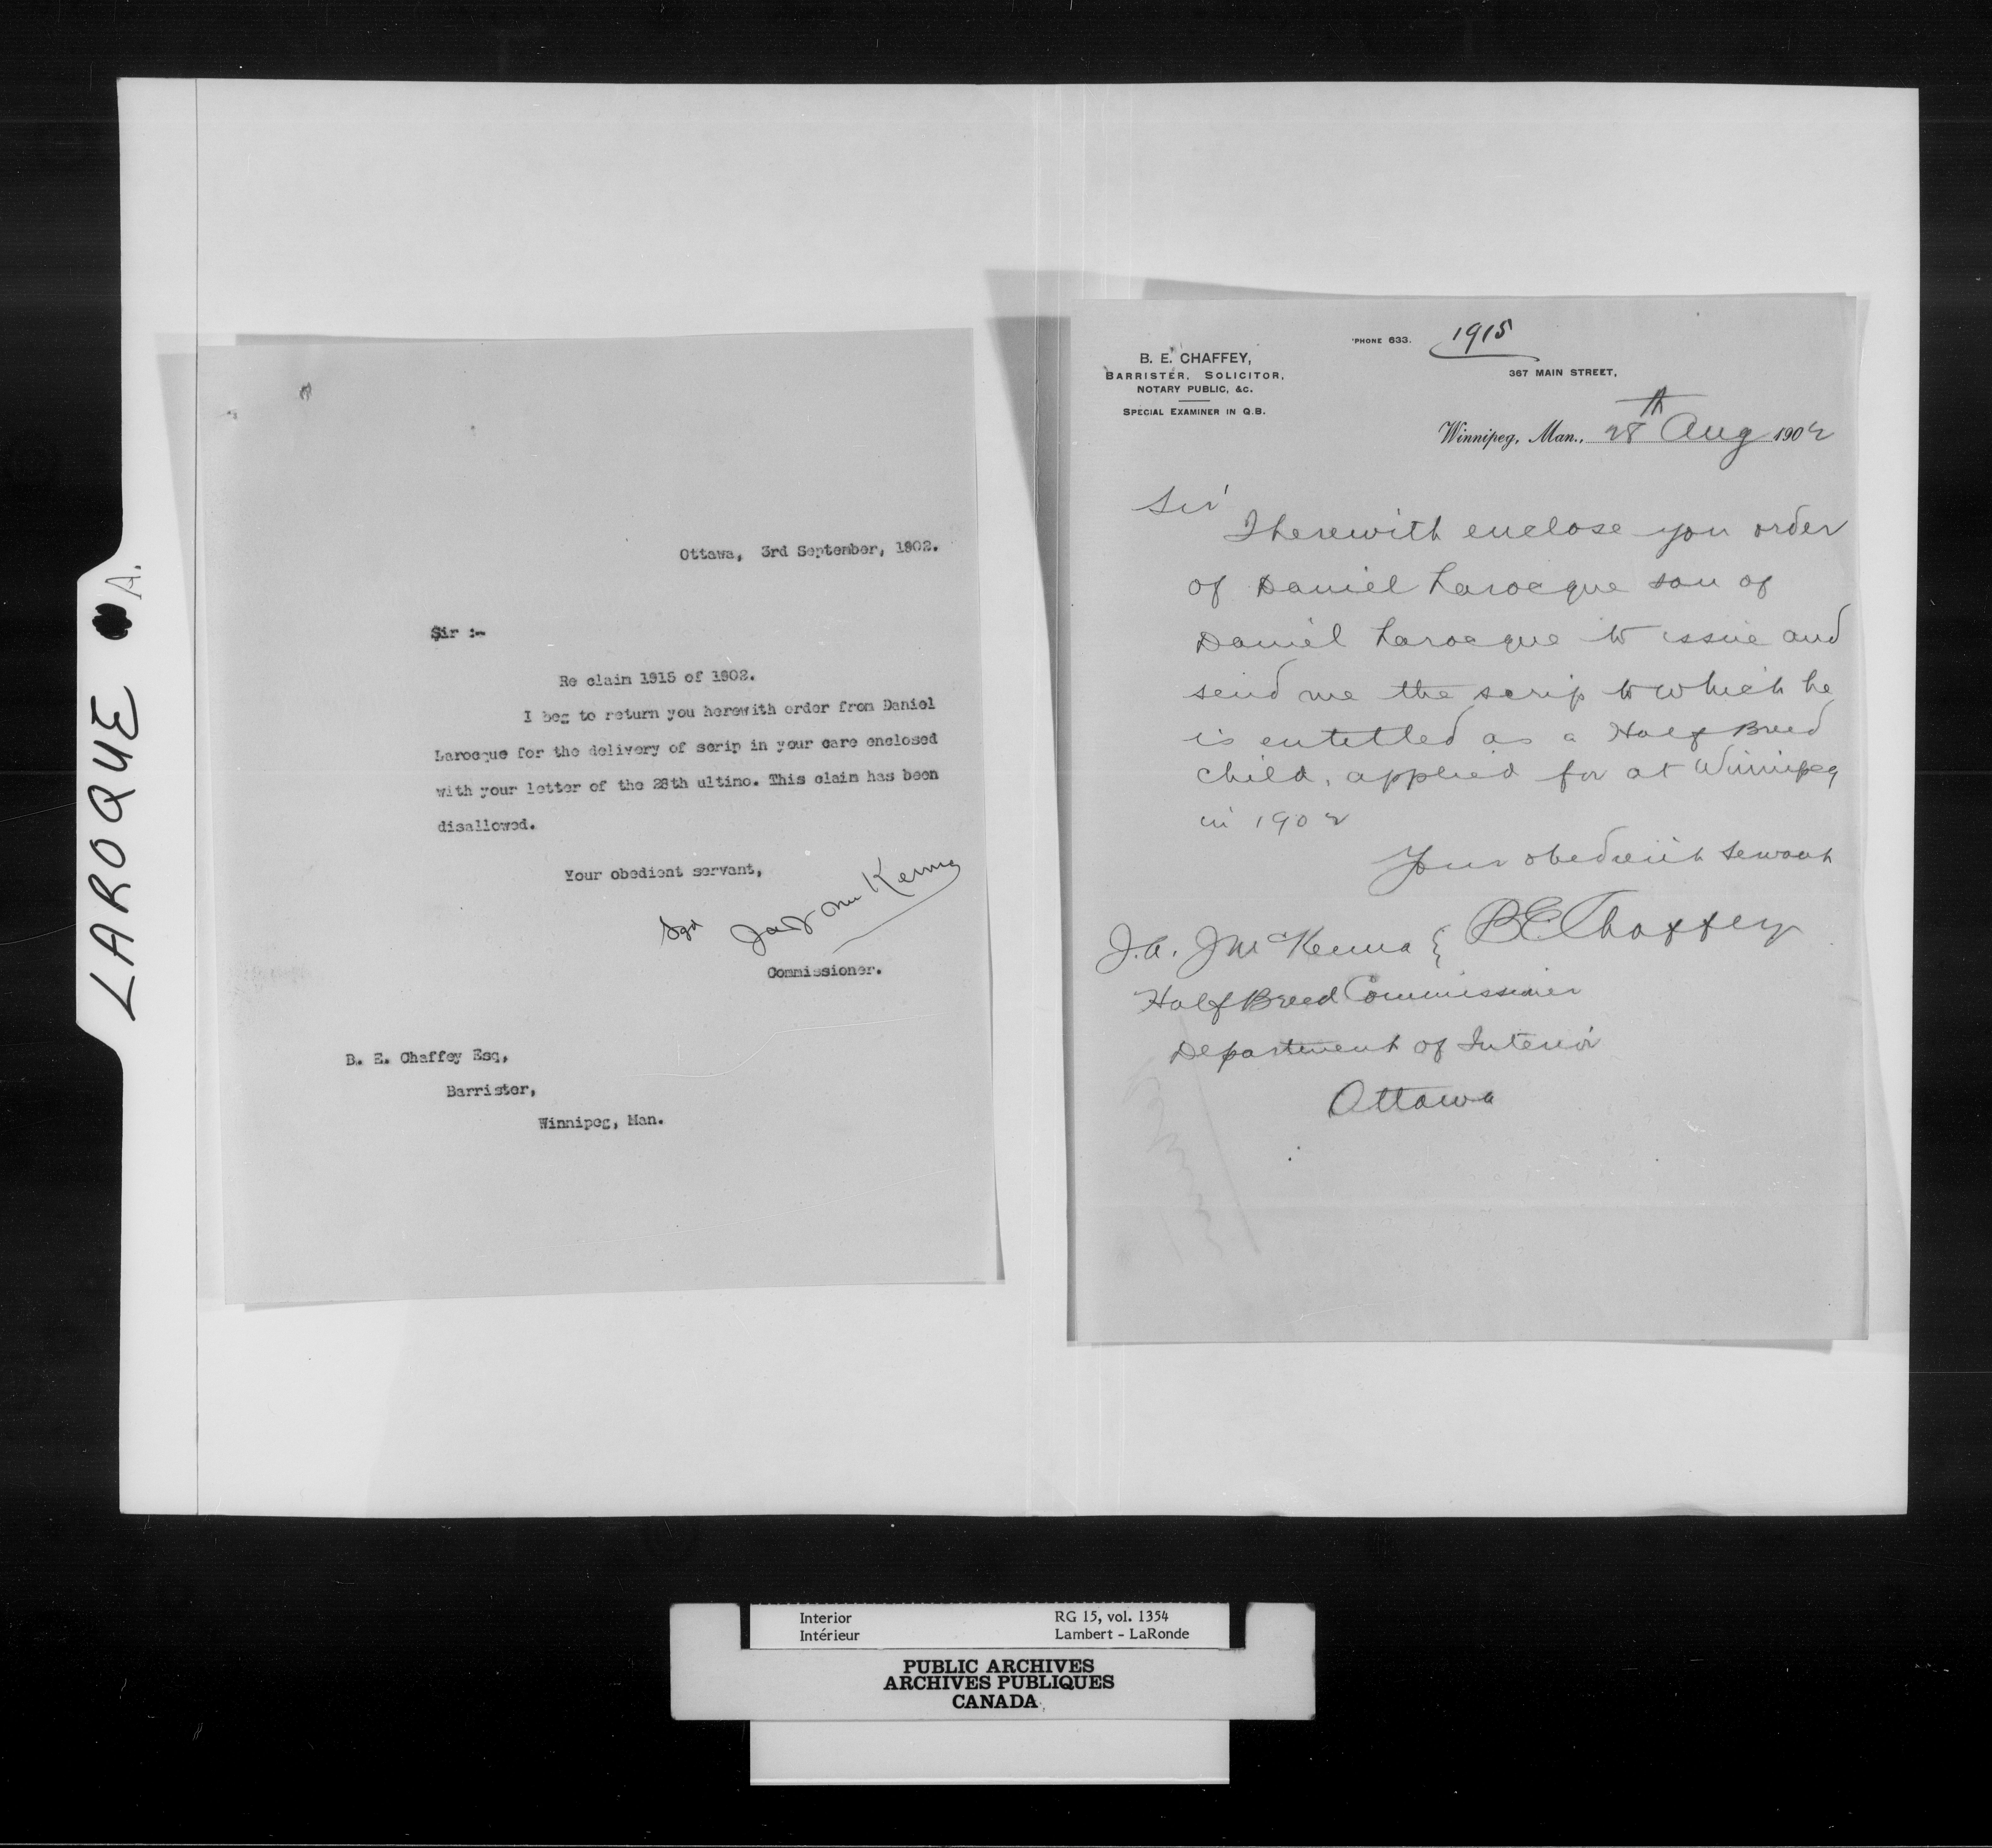 LAROQUE A.
Ottawa, 3rd September, 1902.
Sir :-
Re claim 1915 of 1902.
I beg to return you herewith order from Daniel
Larocque for the delivery of scrip in your care enclosed
with your letter of the 28th ultimo. This claim has been
disallowed.
Your obedient servant,
Sgd J.A.J. McKenna
Commissioner.
B. E. Chaffey Esq,
Barrister,
Winnipeg, Man.
'PHONE 633.
1915
B. E. CHAFFEY,
BARRISTER, SOLICITOR,
NOTARY PUBLIC, &C.
SPECIAL EXAMINER IN Q.B.
367 MAIN STREET,
Winnipeg, Man., 28th Aug 1902
Sir
I herewith enclose you order
of Daniel Larocque son of
Daniel Larocque to issue and
send me the scrip to which he
is entitled as a Half Breed
child, applied for at Winnipeg
in 1902
Your obedient servant
B E Chaffey
J. A. J McKenna {
Half Breed Commissioner
Department of Interior
Ottawa
Interior
Intérieur
RG 15, vol. 1354
Lambert - LaRonde
PUBLIC ARCHIVES
ARCHIVES PUBLIQUES
CANADA